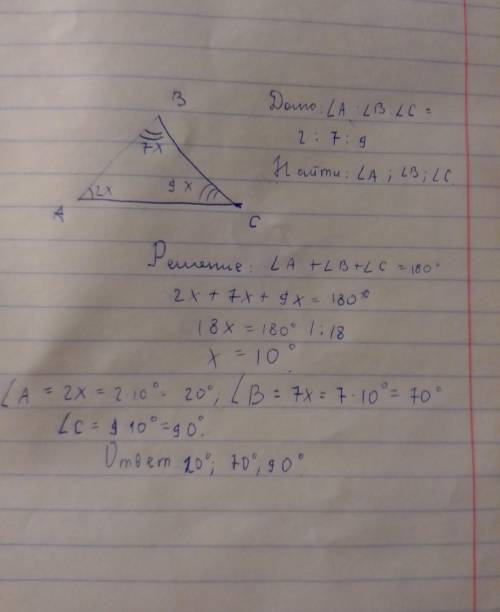 B
Дано: ∠A : ∠B : ∠C =
2 : 7 : 9
7x
Найти: ∠A ; ∠B ; ∠C.
2x
9x
A
C
Решение: ∠A + ∠B + ∠C = 180°
2x + 7x + 9x = 180°
18x = 180° | : 18
x = 10°
∠A = 2x = 2·10° = 20°, ∠B = 7x = 7·10° = 70°
∠C = 9·10° = 90°.
Ответ 20°; 70°; 90°